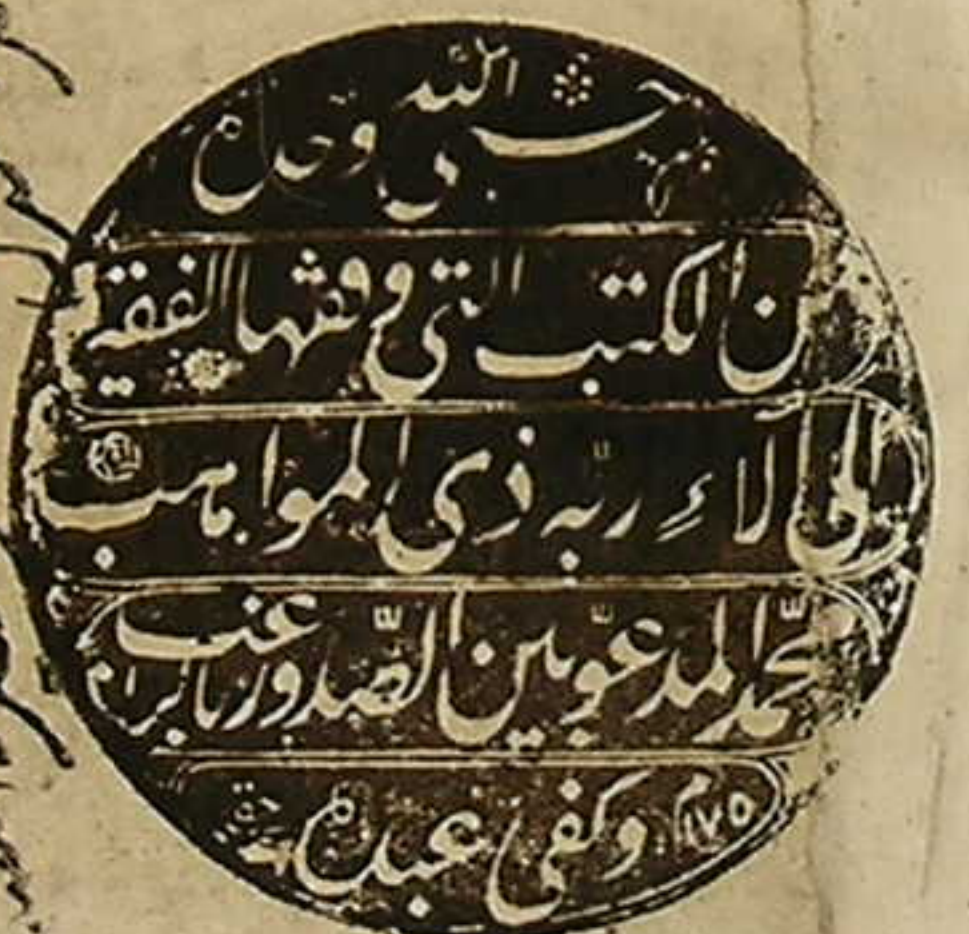 حسبي الله وحده
من الكتب التي وقفها الفقير
إلى آلاء ربه ذي المواهب
محمد المدعو بين الصدور
وكفى عبده